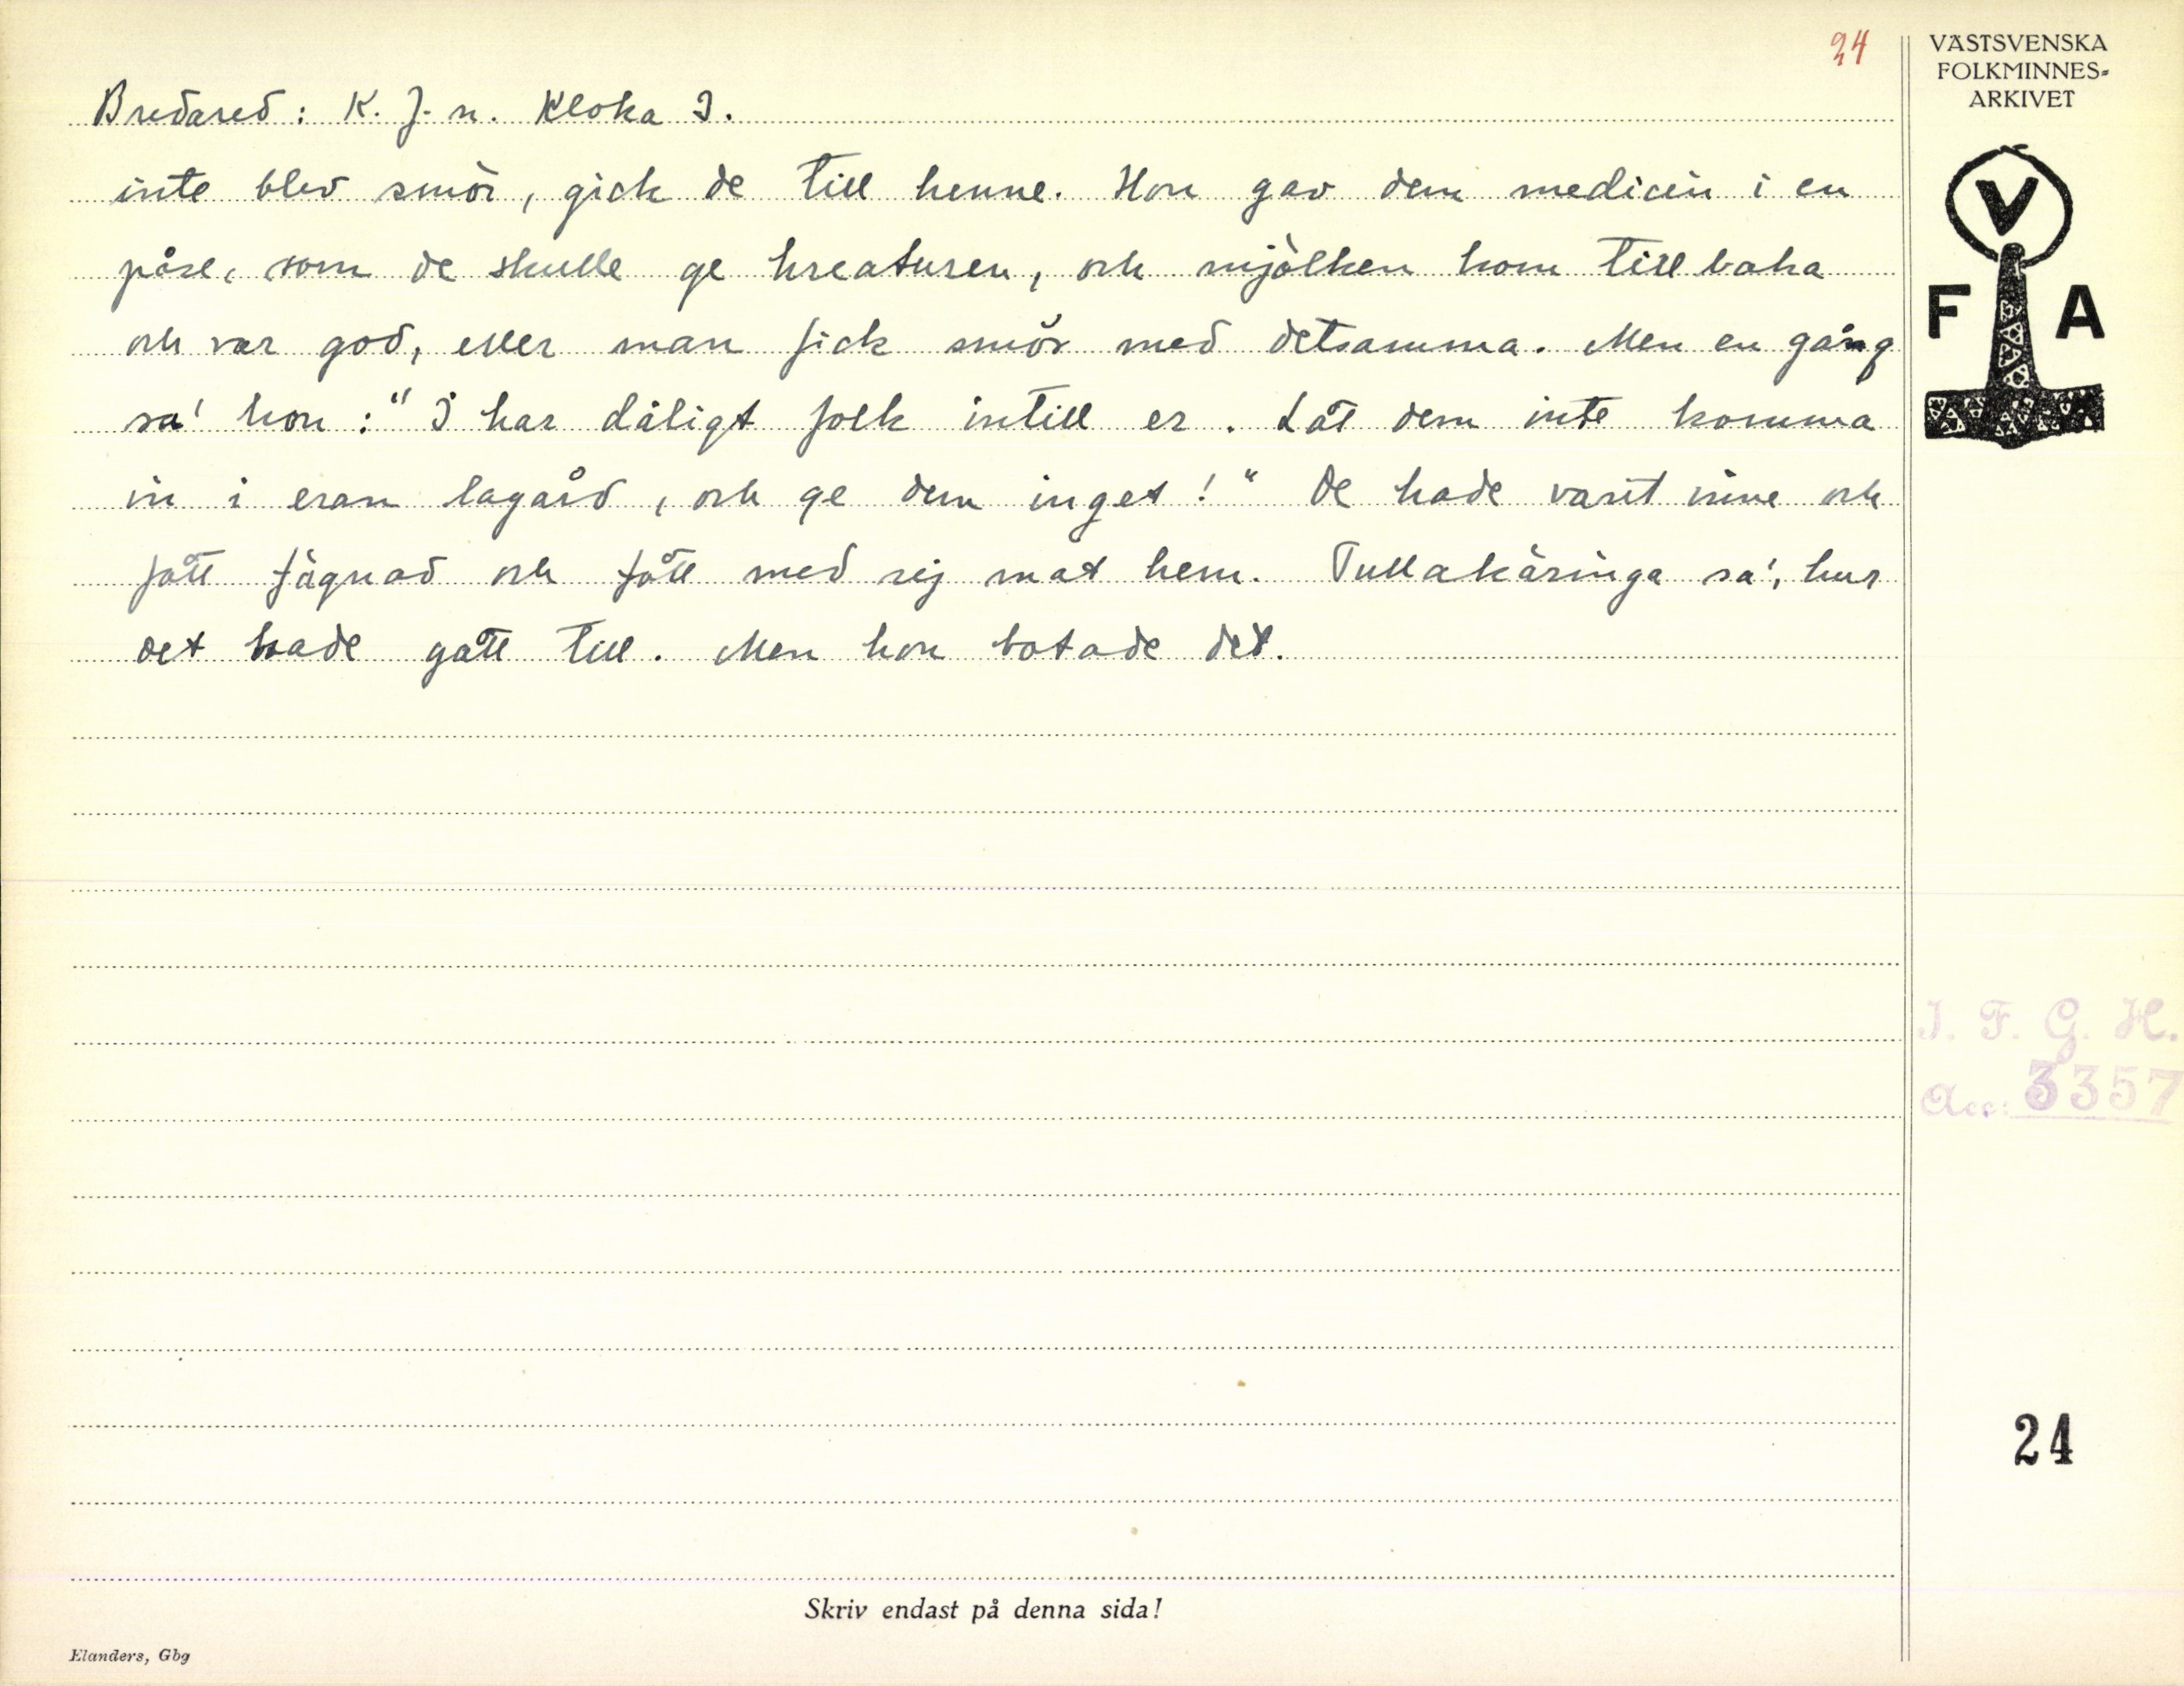 24
VÄSTSVENSKA
FOLKMINNES-
ARKIVET
V
F A
Bredared: K. J. n. Kloka I.
inte blev smör, gick de till henne. Hon gav dem medicin i en
påse, som de skulle ge kreaturen, och mjölken kom tillbaka
och var god, eller man fick smör med detsamma. Men en gång
sa' hon: "I har dåligt folk intill er. Låt dem inte komma
in i eran lagård, och ge dem inget!" De hade varit inne och
fått fägnad och fått med sej mat hem. Tullakäringa sa', hur
det hade gått till. Men hon botade det.
I. F. G. H.
Acc: 3357
24
Skriv endast på denna sida!
Elanders, Gbg